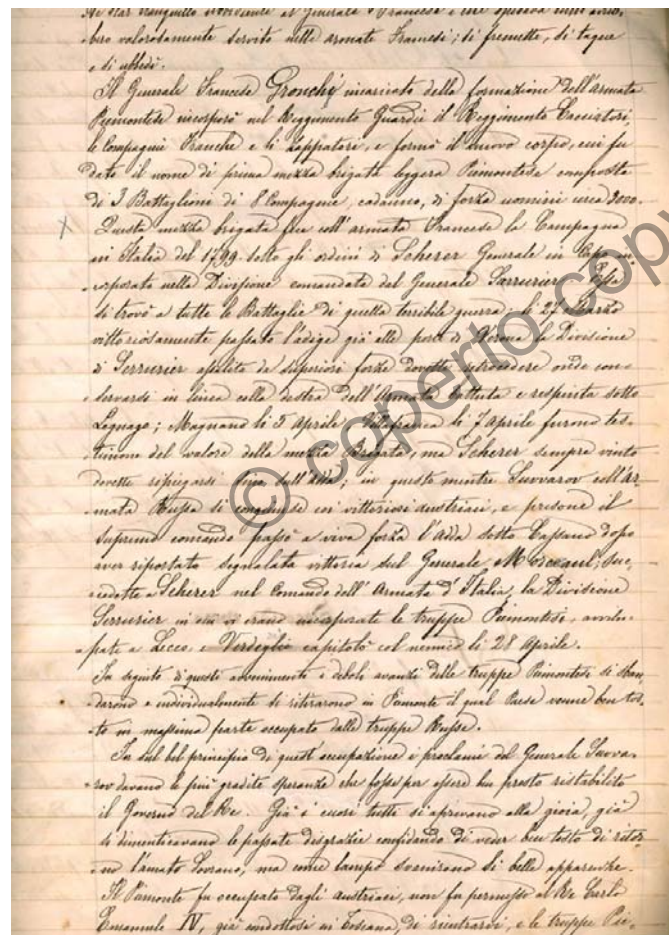 di star tranquillo obbediente al Generale Francese e che
bero valorosamente servito nelle armate Francesi; si fremette, si tacque
e si ubbedì.
Il Generale Francese Gronchÿ incaricato della formazione dell'armata
Piemontese incorporò nel Reggimento Guardie il Reggimento Cacciatori,
le Compagnie Franche e li Zappatori, e formò il nuovo corpo, cui fu
dato il nome di prima mezza brigata leggera Piemontese composta
di 3 Battaglioni di 8 Compagnie, cadauno, di forza uomini circa 3000.
X Questa mezza brigata fece coll'armata Francese la Campagna
in Italia del 1799. sotto gli ordini di Scherer Generale in Capo in-
corporata nella Divisione comandata dal Generale Serrurier. Essa
si trovò a tutte le Battaglie di quella terribile guerra: li 27 Marzo
vittoriosamente passato l'adige già alle porte di Verona la Divisione
di Serrurier assalita da superiori forze dovette retrocedere onde con-
servarsi in linea colla destra dell'Armata battuta e respinta sotto
Legnago; Magnano li 5 Aprile Villafranca li 7 aprile furono tes-
timone del valore della mezza Brigata, ma Scherer sempre vinto
dovette ripiegarsi fino sull'Adda; in questo mentre Suvvarov coll'Ar-
mata Russa si congiunse coi vittoriosi austriaci, e presone il
supremo comando passò a viva forza l'Adda sotto Cassano dopo
aver riportato segnalata vittoria sul Generale suc-
cedette a Scherer nel Comando dell'Armata d'Italia, la Divisione
Serrurier in cui vi erano incorporate le truppe Piemontesi, avvilu-
pate a Lecco, e Verdeglio capitolò col nemico li 28 aprile.
In seguito di questi avvenimenti i deboli avanzi delle truppe Piemontesi si sban-
darono e individualmente si ritirarono in Piemonte il qual Paese venne ben tos-
to in massima parte occupato dalle truppe Russe.
In sul bel principio di quest'occupazione i proclami del Generale Suvva-
rov davano le più gradite speranze che fosse per essere ben presto ristabilito
il Governo del Re. Già i cuori tutti si aprivano alla gioia, già
si dimenticavano le passate disgrazie confidando di veder ben tosto di ritor-
no l'amato Sovrano, ma come lampo svanirono sì belle apparenze.
Il Piemonte fu occupato dagli austriaci, non fu permesso al Re Carlo
Emanuele IV, già condottosi in Toscana, di rientrarvi, e le truppe Pie-
© coperto cop